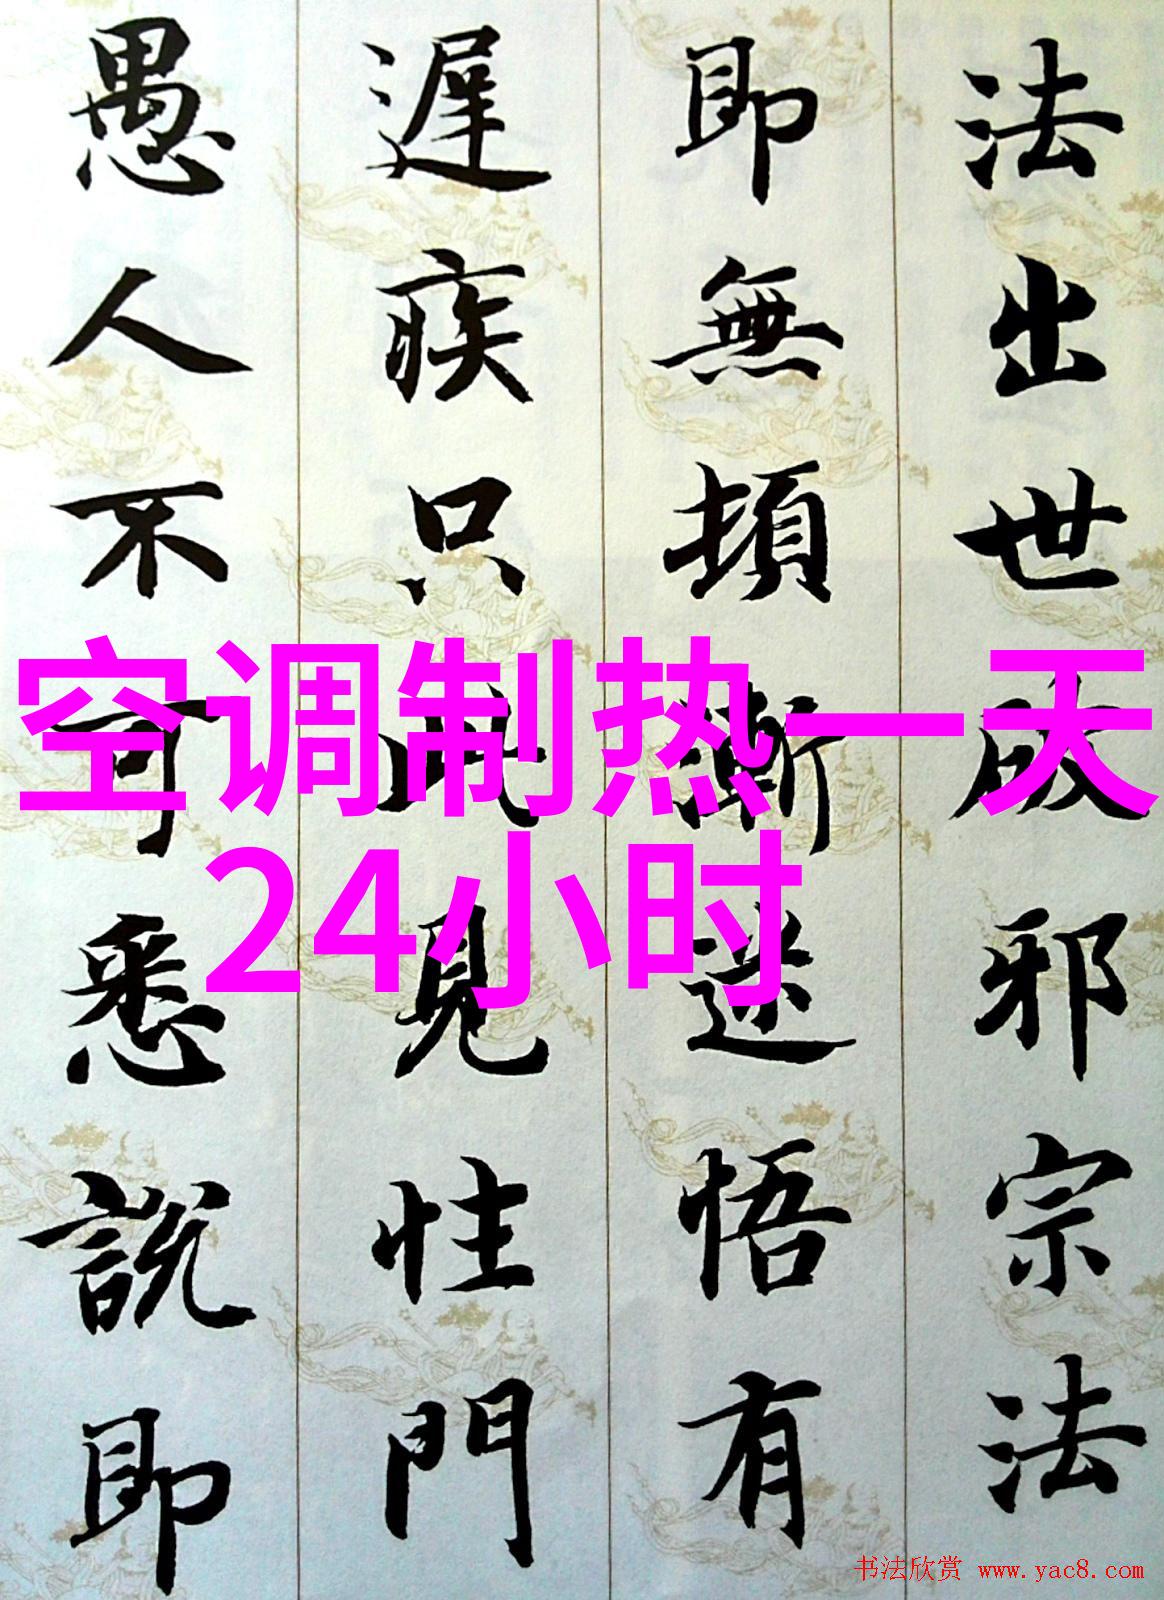 法出世破邪宗法
即無頓漸迷悟有
遲疾只此見性門
愚人不可悉說即
空调制热一天
24小时
书法欣赏 www.yac8.com